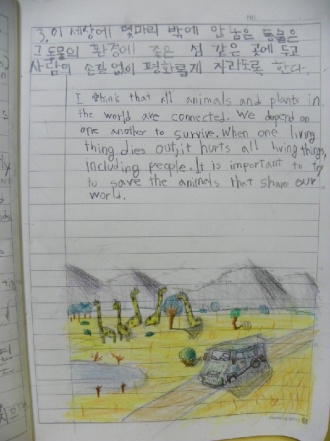 3. 이 세상에 몇마리 밖에 안 남은 동물은
그 동물의 환경에 좋은 섬 같은 곳에 두고
사람의 손길 없이 평화롭게 자라도록 한다.
I think that all animals and plants in
the world are connected. We depend on
one another to survive. When one living
thing dies out, it hurts all living things,
including people. It is important to try
to save the animals that share our
world.